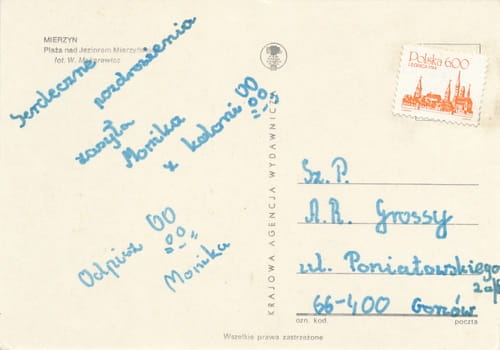 MIERZYN
Plaża nad Jeziorem Mierzyńskim
fot. W. Makarewicz
Serdeczne
pozdrowienia
zasyła
Monika
z kolonii
Odpisz
Monika
KRAJOWA AGENCJA WYDAWNICZA
Polska 6.00
LEGNICA 1744
Sz. P.
A. R. Grossy
ul. Poniatowskiego
66-400 Gorzów
ozn. kod. poczta
Wszelkie prawa zastrzeżone